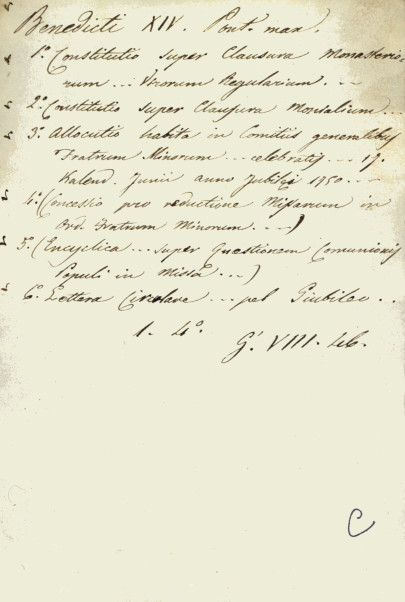 Benedicti XIV. Pont. max.
1.º Constitutio super Clausura Monasterio-
rum ... Virorum Regularium. ...
2.º Constitutio super Clausura Monialium ...
3.º Allocutio habita in Comitiis generalibus
Fratrum Minorum ... celebratis ... 17.
Kalend. Junii anno Jubilei 1750 ...
4.º (Concessio pro reductione Missarum in
Ord. Fratrum Minorum. ...)
5.º (Encyclica ... super Quaestionem Communionis
Populi in Missâ ...)
6.º Lettera Circolare ... pel Giubileo ..
1. 4.º
G. VIII. 46.
C